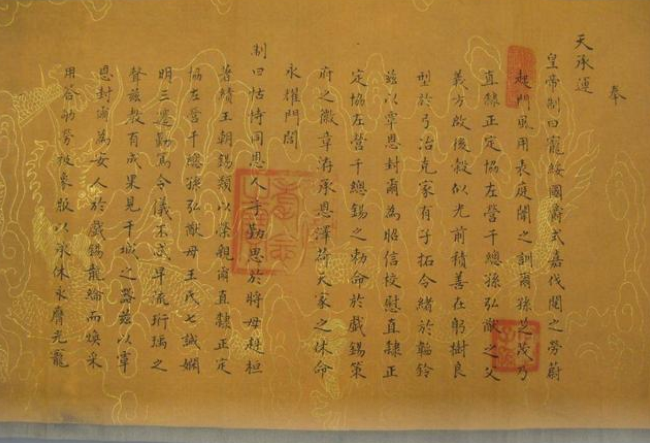 奉
天承運
皇帝制曰寵綏國爵式嘉伐閱之勞蔚
起門風用表庭闈之訓爾孫芝茂乃
直隷正定協左營千總孫弘猷之父
義方啟後穀似光前積善在躬樹良
型於弓冶克家有子拓令緒於韜鈐
茲以覃恩封爾為昭信校慰直隷正
定協左營千總錫之勅命於戲錫策
府之徽章洊承恩澤荷天家之休命
永耀門閭
制曰怙恃同恩人子勤思於將母赳桓
著績王朝錫類以榮親爾直隷正定
協左營千總孫弘猷母王氏七誡嫻
明三遷勤篤令儀不忒早流珩瑀之
聲慈教有成果見干城之器茲以覃
恩封爾為安人於戲錫龍綸而煥采
用答劬勞被象服以承休永膺光寵